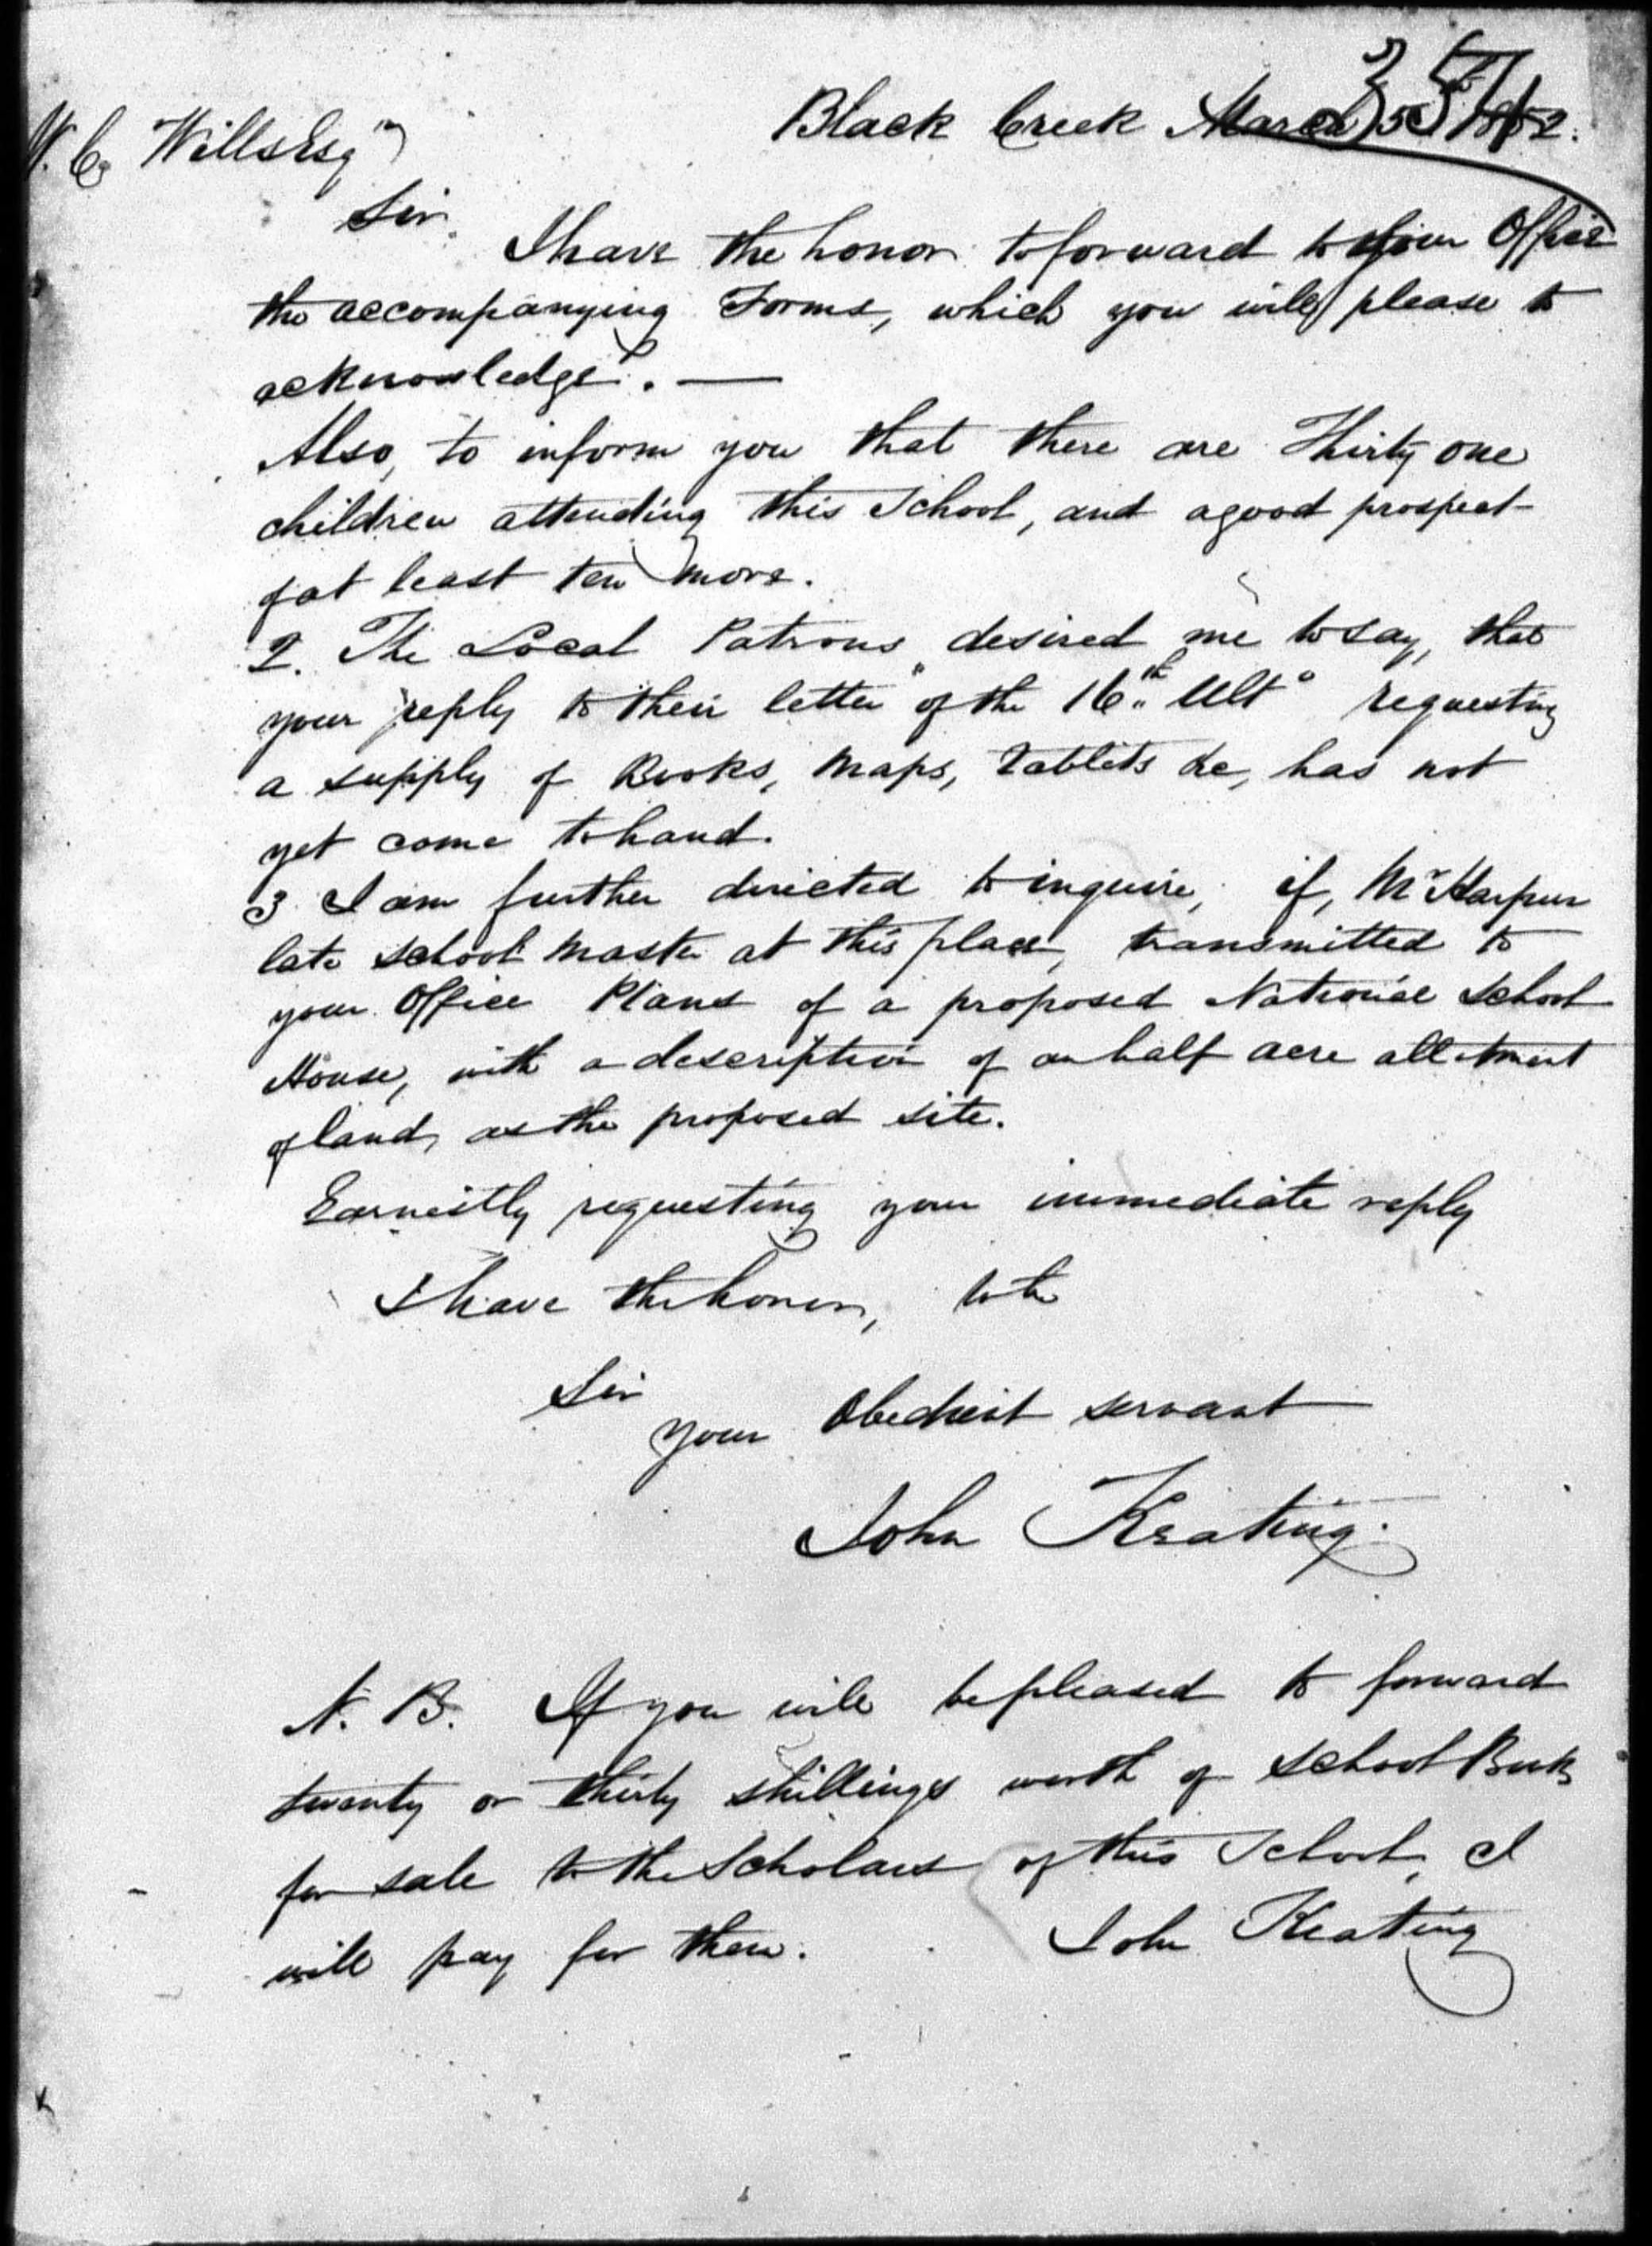 Black Creek March
W. C. Wills Esq
Sir,
I have the honor to forward to your Office
the accompanying Forms, which you will please to
acknowledge. —
Also, to inform you that there are Thirty one
children attending this School, and a good prospect
of at least ten more.
2. The Local Patrons desired me to say, that
your reply to their letter "of the 16th Ulto" requesting
a supply of Books, Maps, Tablets &c, has not
yet come to hand.
3 I am further directed to inquire, if, Mr Harpur
late School Master at this place, transmitted to
your Office Plans of a proposed National School
House, with a description of an half acre allotment
of land, as the proposed site.
Earnestly requesting your immediate reply
I have the honor, to be
Sir
your Obedient servant
John Keating.
N. B. If you will be pleased to forward
twenty or thirty shillings worth of School Books
for sale to the Scholars of this School, I
will pay for them. John Keating